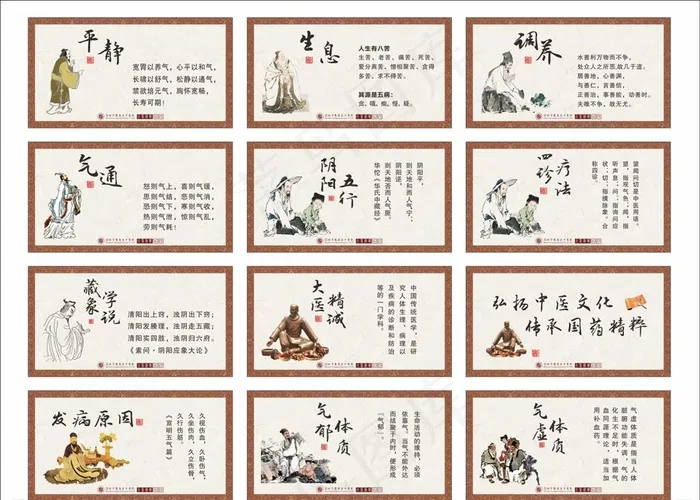 平静
宽胃以养气，心平以和气，
长啸以舒气，松静以通气，
禁欲培元气，胸怀宽畅，
长寿可期！
生息
人生有八苦
生苦、老苦、病苦、死苦、
爱分离苦、憎相聚苦、贪得
多苦、求不得苦。
其源是五病：
贪、嗔、痴、慢、疑。
调养
水善利万物而不争，
处众人之所恶，故几于道。
居善地，心善渊，
与善仁，言善信，
正善治，事善能，动善时。
夫唯不争，故无尤。
气通
怒则气上，喜则气缓，
思则气结，悲则气消，
恐则气下，寒则气收，
热则气泄，惊则气乱，
劳则气耗！
阴阳五行
阴阳平，
则天地和而人气宁；
阴阳逆，
则天地否而人气厥。
华佗《华氏中藏经》
四诊疗法
望闻问切是中医用语。
望，指观气色；闻，指
听声息；问；指询问症
状；切；指摸脉象。合
称四诊。
藏象学说
清阳出上窍，浊阴出下窍；
清阳发腠理，浊阴走五藏；
清阳实四肢，浊阴归六府。
《素问·阴阳应象大论》
大医精诚
中国传统医学，是研
究人体生理、病理以
及疾病的诊断和防治
等的一门学科。
弘扬中医文化
传承国药精粹
发病原因
久视伤血，久卧伤气，
久坐伤肉，久立伤骨，
久行伤筋。
《宣明五气篇》
气郁体质
生命活动的维持，必须
依靠气，当气不能外达
而结聚于内时，便形成
“气郁”。
气虚体质
气虚体质是指当人体
脏腑功能失调，气的
化生不足时，根据气
血同源理论，适当加
用补血药。